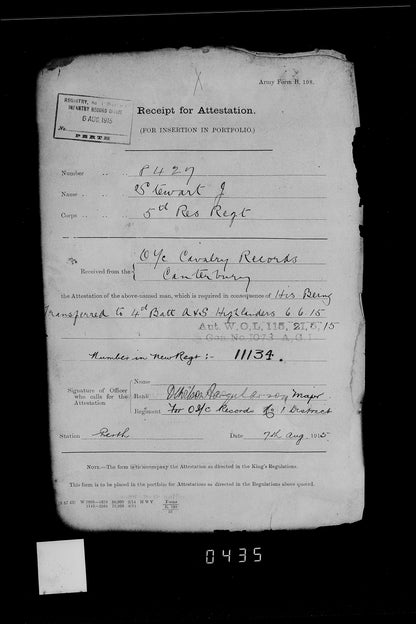 Army Form B. 198.
REGISTRY, No. 1
INFANTRY RECORD OFFICE
6 AUG. 1915
No.
PERTH
Receipt for Attestation.
(FOR INSERTION IN PORTFOLIO.)
Number 8427
Name Stewart J
Corps 5th Res Regt
Received from the { O/c Cavalry Records
Canterbury
the Attestation of the above-named man, which is required in consequence of His Being
Transferred to 4th Batt A&S Highlanders 6 6 15
Aut. W.O.L. 115, 21, 5, 15
Number in New Regt :- 11134.
Signature of Officer who calls for the Attestation
Name
Rank Major
Regiment For O I/C Records No 1 District
Station Perth
Date 7th Aug 1915
NOTE.—The form is to accompany the Attestation as directed in the King's Regulations.
This form is to be placed in the portfolio for Attestations as directed in the Regulations above quoted.
H W V Forms
B. 198
0435